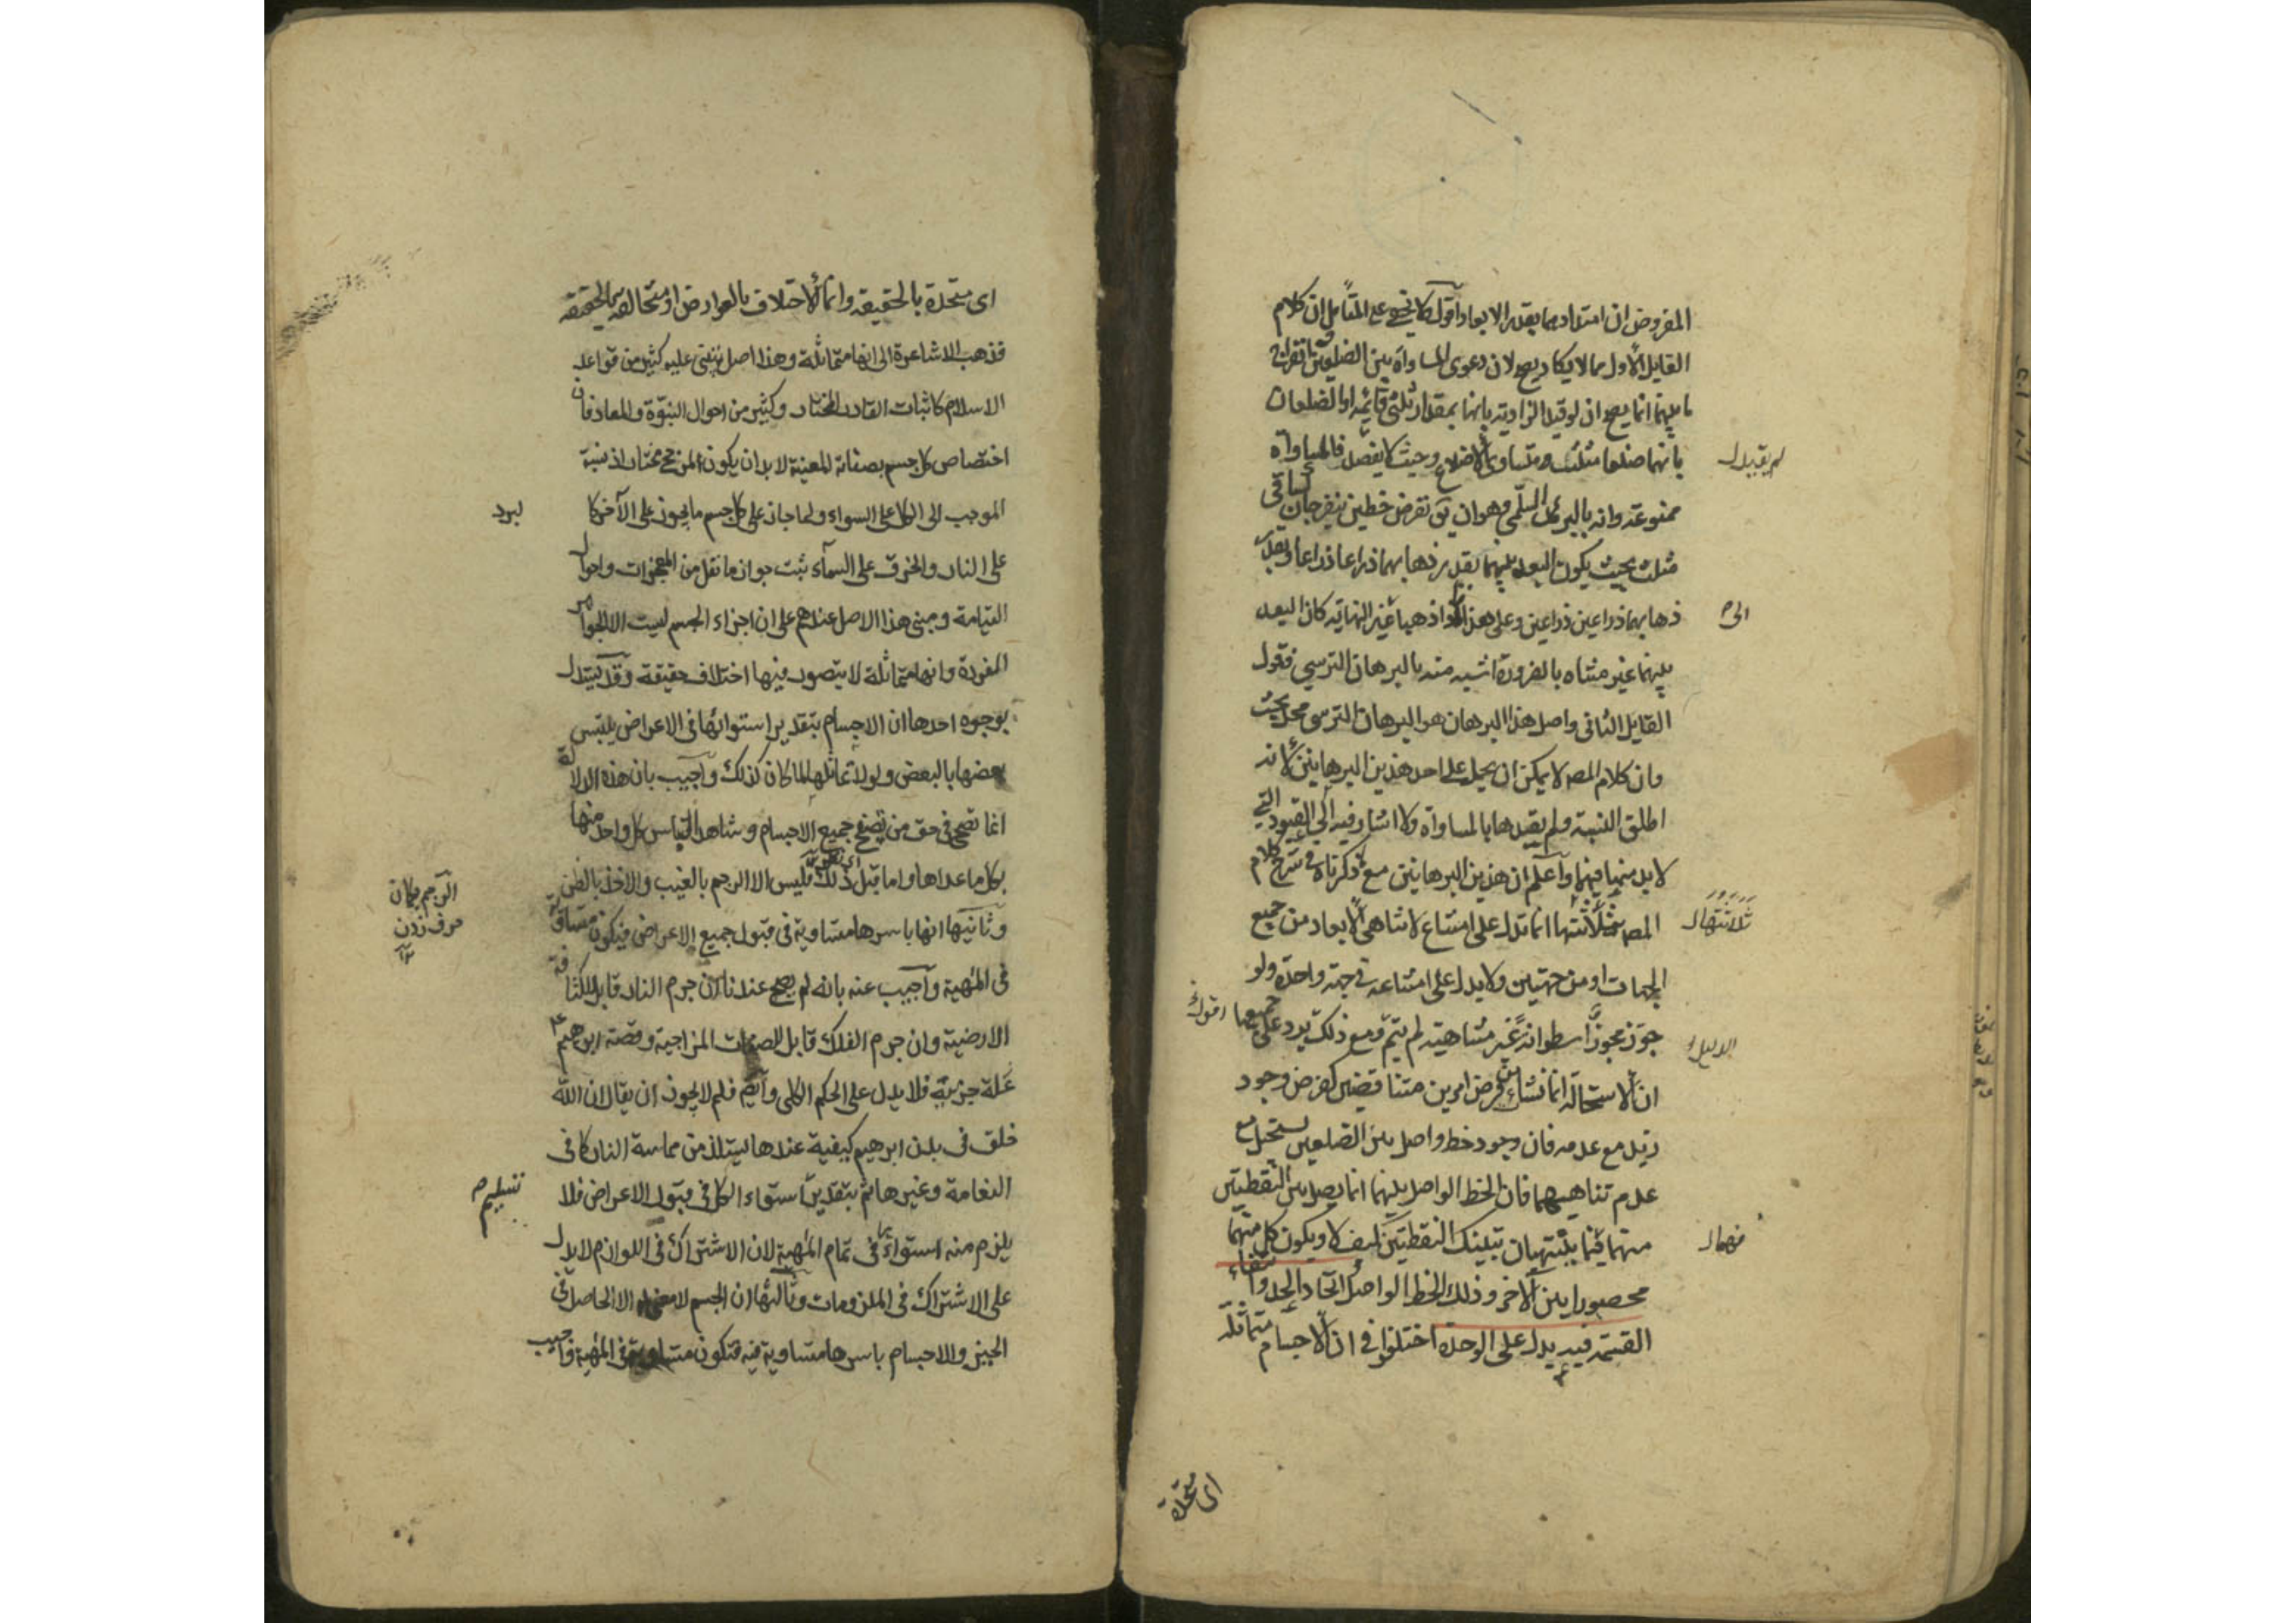 المفروض ان امتدادهما بقدر الابعاد اقول لا يخفى على المتامل ان كلام
القايل الاول مما لا يكاد يصح لان دعوى المساواة بين الضلعين
ما بينهما انما يصح ان لو قيد الزاوية بانها بمقدار ثلثى قائمة او الضلعان
بانهما ضلعا مثلث متساوى الاضلاع وحيث لا يفصل فالمساواة
لم يقيد
ممنوعة وانه بالبرهان السلمى وهو ان نفرض خطين ينفرجان كساقى
مثلث بحيث يكون البعد بينهما بقدر ذهابهما ذراعا ذراعا وبقدر
ذهابهما ذراعين ذراعين وعلى هذا فاذا ذهبا غير النهاية كان البعد
الى
بينهما غير متناه بالضرورة اشبه منه بالبرهان الترسي فقول
القايل الثانى واصل هذا البرهان هو البرهان الترسى محل بحث
وان كلام المصـ لا يمكن ان يحمل على احد هذين البرهانين لانه
اطلق النسبة ولم يقيدها بالمساواة ولا اشار فيه الى القيود التى
لا بد منها فيهما واعلم ان هذين البرهانين مع ما ذكرناه فى شرح كلام
المصـ بثلاثتها انما تدل على امتناع لا تناهى الابعاد من جميع
ثلاثتها
الجهات او من جهتين ولا يدل على امتناعه فى جهة واحدة ولو
جوز مجوز اسطوانة غير متناهية لم يتم ومع ذلك يرد على جميعها اقول
الدليل
ان الاستحالة انما نشات من فرض امرين متناقضين كفرض وجود
زيد مع عدمه فان وجود خط واصل بين الضلعين يستحيل مع
عدم تناهيهما فان الخط الواصل بينهما انما يصل بين النقطتين
منهما فهما ينتهيان بتينك النقطتين كيف لا ويكون كل منهما
محصورا بين الآخر وذلك الخط الواصل اتحاد الحد وانتفاء
القسمة فيه يدل على الوحدة اختلفوا فى ان الاجسام متماثلة
اى متحدة
اى متحدة بالحقيقة وانما الاختلاف بالعوارض او متخالفة بالحقيقة
فذهب الاشاعرة الى انها متماثلة وهذا اصل يبتنى عليه كثير من قواعد
الاسلام كاثبات القادر المختار وكثير من احوال النبوة والمعاد فان
اختصاص كل جسم بصفاته المعينة لا بد ان يكون لمرجح مختار اذ نسبة
الموجب الى الكل على السواء ولما جاز على كل جسم ما يجوز على الآخر كا
لبرد
على النار والخرق على السماء ثبت جواز ما نقل من المعجزات واحوال
القيامة ومبنى هذا الاصل عندهم على ان اجزاء الجسم ليست الا الجواهر
المفردة وانها متماثلة لا يتصور فيها اختلاف حقيقة وقد يستدل
بوجوه احدها ان الاجسام بتقدير استوائها فى الاعراض يلتبس
بعضها بالبعض ولولا تماثلها لما كان كذلك واجيب بان هذه الدلالة
انما تصح فى حق من تصفح جميع الاجسام وشاهد التباس كل واحد منها
بكل ما عداها واما قبل ذلك فليس الا الرجم بالغيب والاخذ بالظن
الرجم بكمان
حرف زدن
١٢
وثانيها انها باسرها متساوية فى قبول جميع الاعراض فيكون متساوية
فى المهية واجيب عنه بانه لم يصح عندنا ان جرم النار قابل للكثافة
الارضية وان جرم الفلك قابل للصفات المزاجية وقصة ابرهيم
علة جزئية فلا يدل على الحكم الكلى وايضا فلم لا يجوز ان يقال ان الله
خلق فى بدن ابرهيم كيفية عندها يستلذ من مماسة النار كما فى
النعامة وغيرها ثم بتقدير استواء الكل فى قبول الاعراض فلا
تسليم
يلزم منه استوائها فى تمام المهية لان الاشتراك فى اللوازم لا يدل
على الاشتراك فى الملزومات وثالثها ان الجسم لا معنى له الا الحاصل فى
الحيز والاجسام باسرها متساوية فيه فتكون متساوية فى المهية واجيب